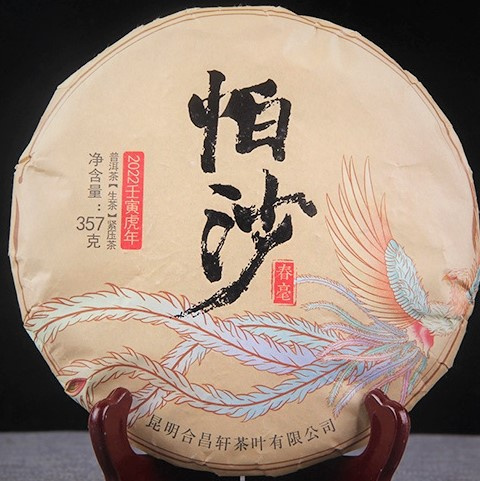 怕沙
春毫
2022壬寅虎年
普洱茶【生茶】紧压茶
净含量：357克
昆明合昌轩茶叶有限公司